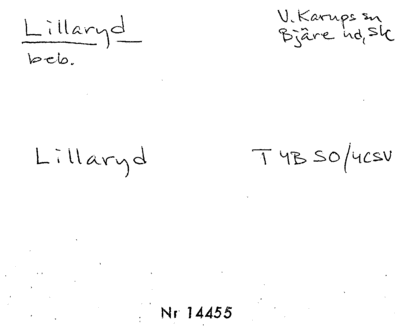 Lillaryd
beb.
V. Karups sn
Bjäre hd, Sk
Lillaryd
T 4B SO/4CSV
Nr 14455